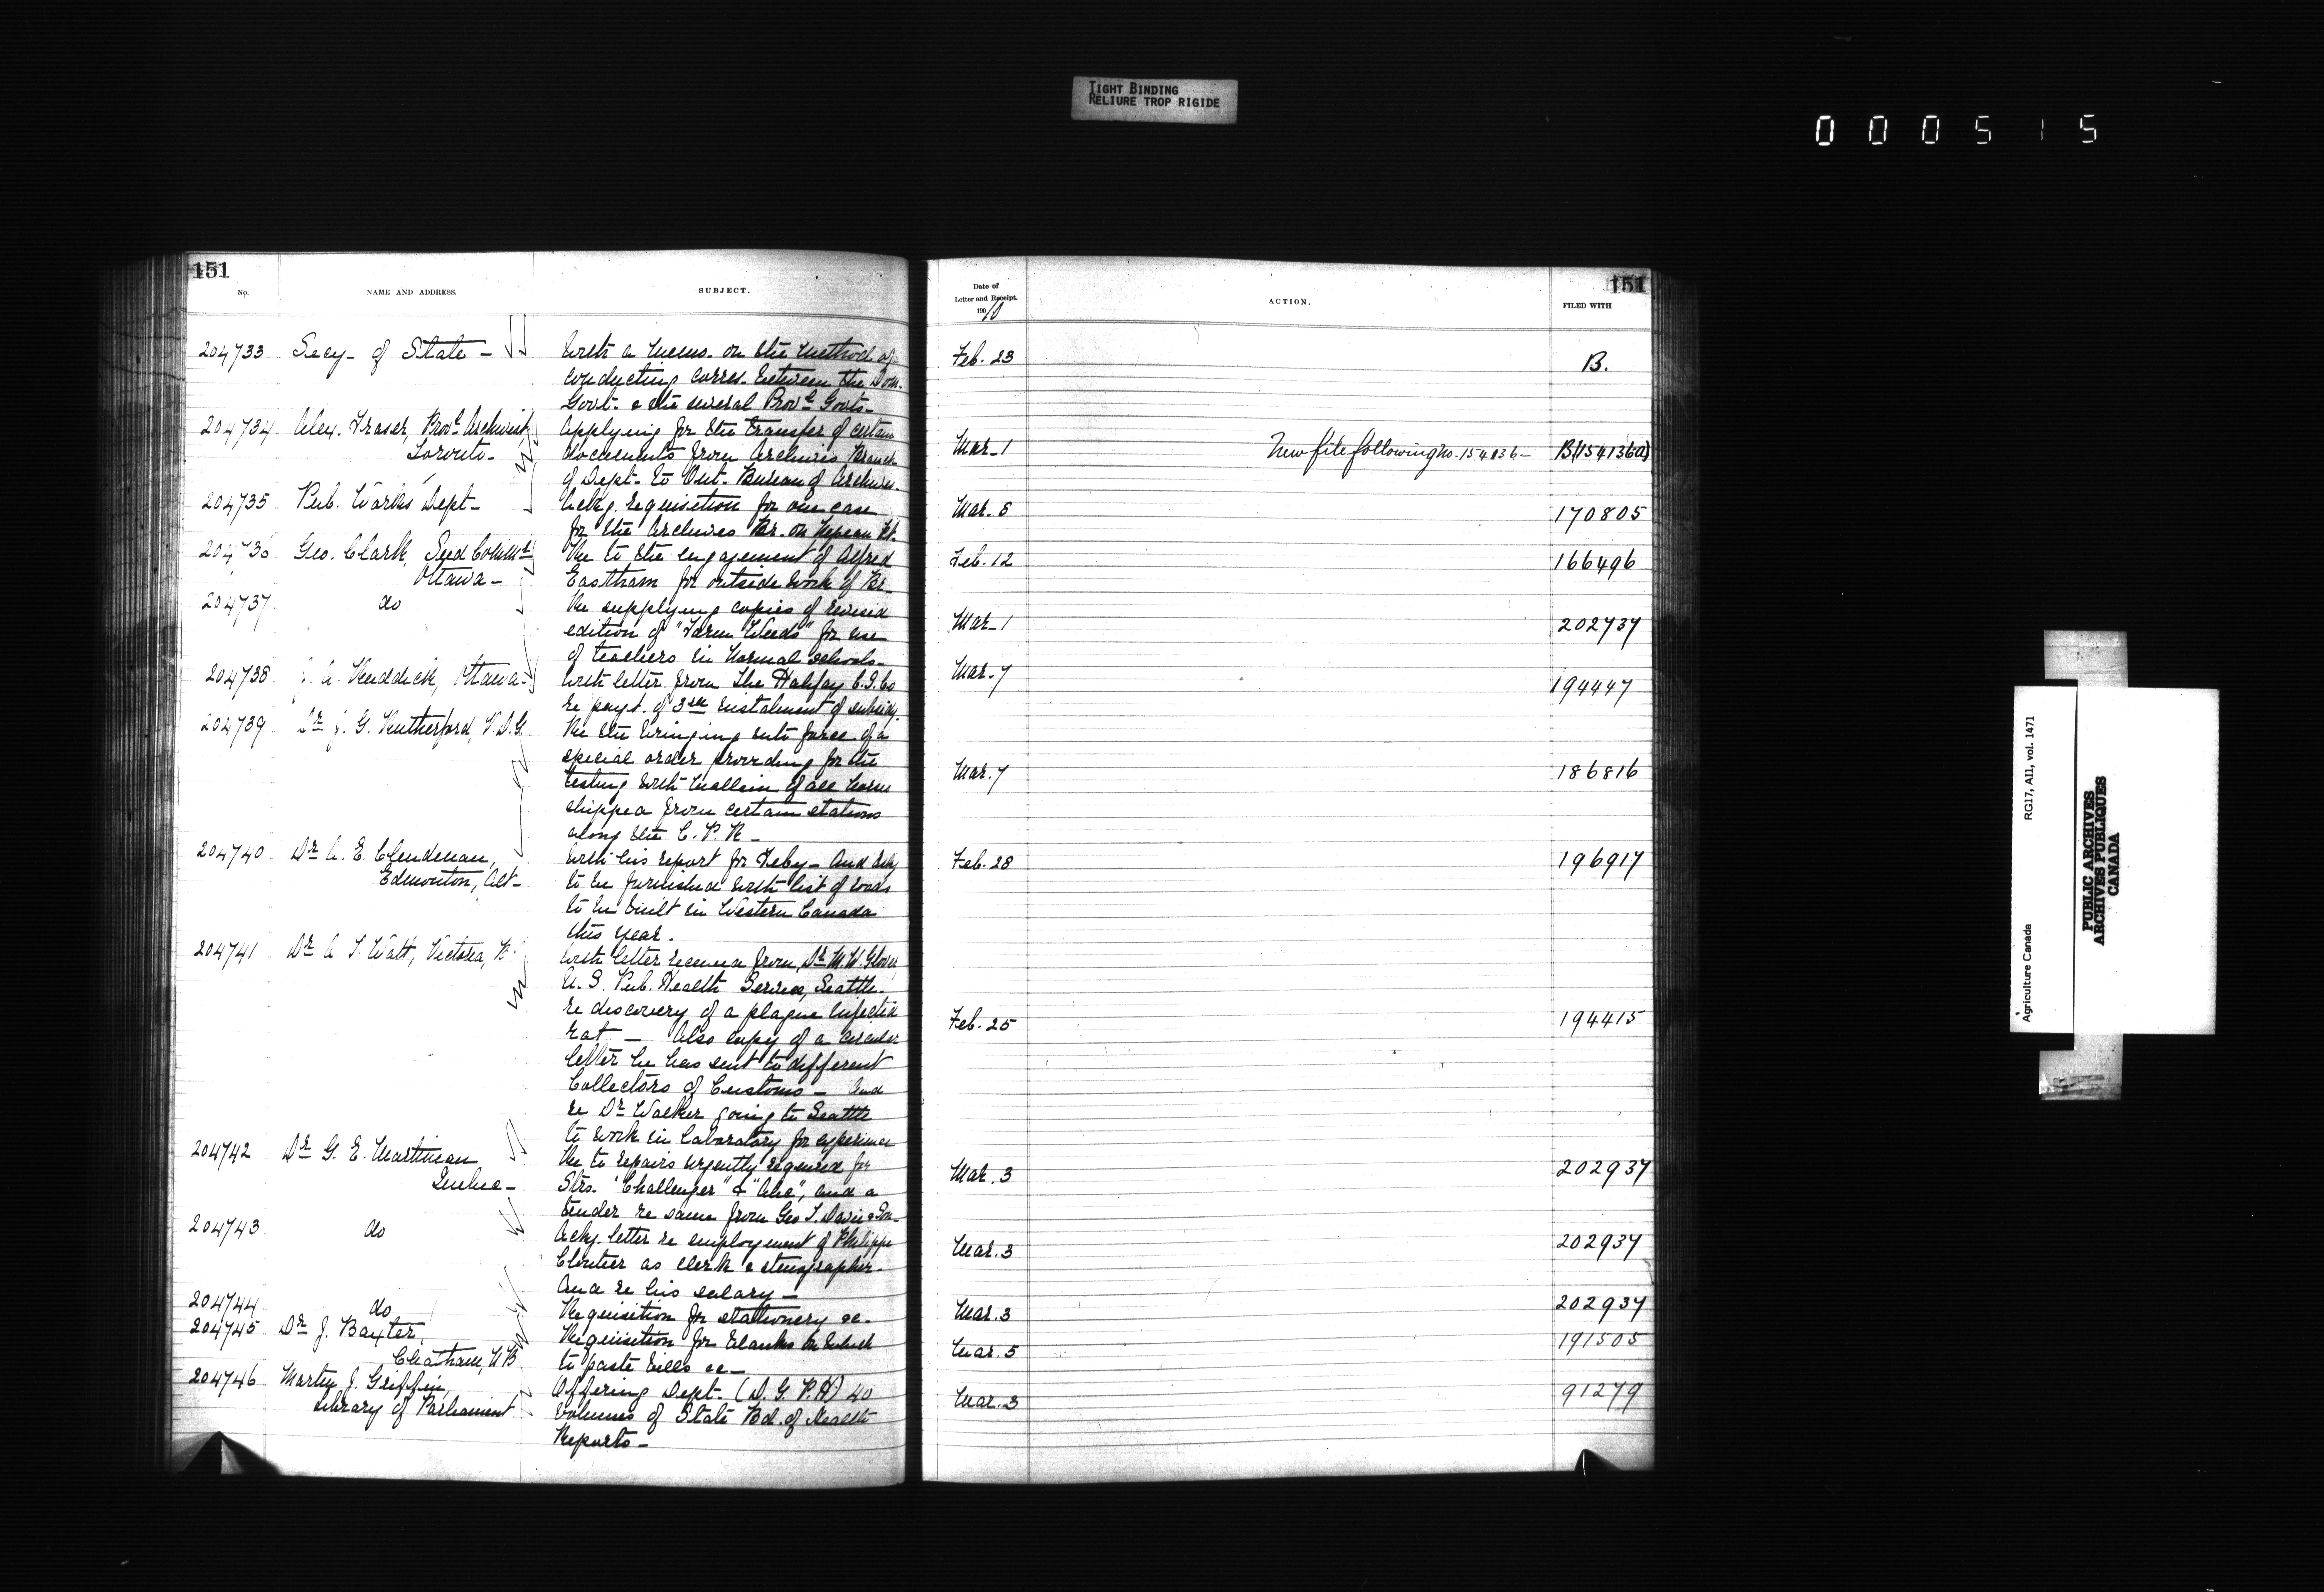 TIGHT BINDING
RELIURE TROP RIGIDE
000515
151
No.
NAME AND ADDRESS.
SUBJECT.
204733 Secy. of State - With a memo. on the method of
conducting corres. between the Dom.
Govt. & the several Prov.l Govts.
204734 Alex. Fraser, Prov.l Archivist Applying for the transfer of certain
Toronto- documents from Archives Branch
of Dept. to Ont. Bureau of Archives.
204735 Pub. Works Dept- Ackg. requisition for one case
for the Archives Br. on Nepean Pt.
204736 Geo. Clark, Seed Commr. Re to the engagement of Alfred
Ottawa- Eastham for outside work of Br-
204737 do Re supplying copies of revised
edition of "Farm Weeds" for use
of teachers in Normal schools-
204738 J. A. Ruddick, Ottawa- With letter from The Halifax C.S. Co
re payt. of 3rd instalment of subsidy.
204739 Dr J. G. Rutherford, V.D.G. Re the bringing into force of a
special order providing for the
testing with mallein of all horses
shipped from certain stations
along the C. P. R-
204740 Dr A. E. Clendenan, With his report for Feby- And asks
Edmonton, Alt- to be furnished with list of roads
to be built in Western Canada
this year.
204741 Dr A. T. Watt, Victoria, B.C. With letter received from Dr M. W. Glover,
U. S. Pub. Health Service, Seattle.
re discovery of a plague infected
rat - Also copy of a circular
letter he has sent to different
Collectors of Customs - And
re Dr Walker going to Seattle
to work in laboratory for experience
204742 Dr G. E. Martineau Re to repairs urgently required for
Quebec- Strs. "Challenger" & "Alice", and a
tender re same from Geo T. Davie & Son-
204743 do Ackg. letter re employment of Philippe
Cloutier as clerk & stenographer-
And re his salary-
204744 do Requisition for stationery &c-
204745 Dr J. Baxter, Requisition for blanks on which
Chatham, N B to paste bills &c-
204746 Martin J. Griffin, Offering Dept. (D. G. P. H) 40
Library of Parliament volumes of State Bd. of Health
Reports-
151
Date of
Letter and Receipt.
1910
ACTION.
FILED WITH
Feb. 23 B.
Mar-1 New file following No. 154136- B(154136a)
Mar. 5 170805
Feb. 12 166496
Mar-1 202737
Mar-7 194447
Mar. 7 186816
Feb. 28 196917
Feb. 25 194415
Mar. 3 202937
Mar. 3 202937
Mar. 3 202937
Mar. 5 191505
Mar. 3 91279
Agriculture Canada RG17, AI1, vol. 1471
PUBLIC ARCHIVES
ARCHIVES PUBLIQUES
CANADA